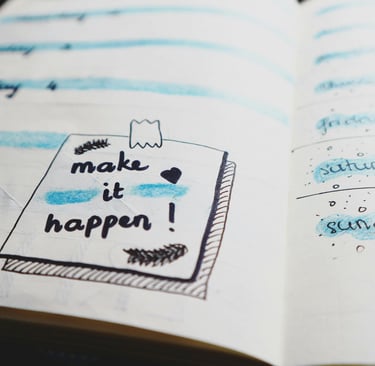 make
it
happen!
4
frida
satu
sun